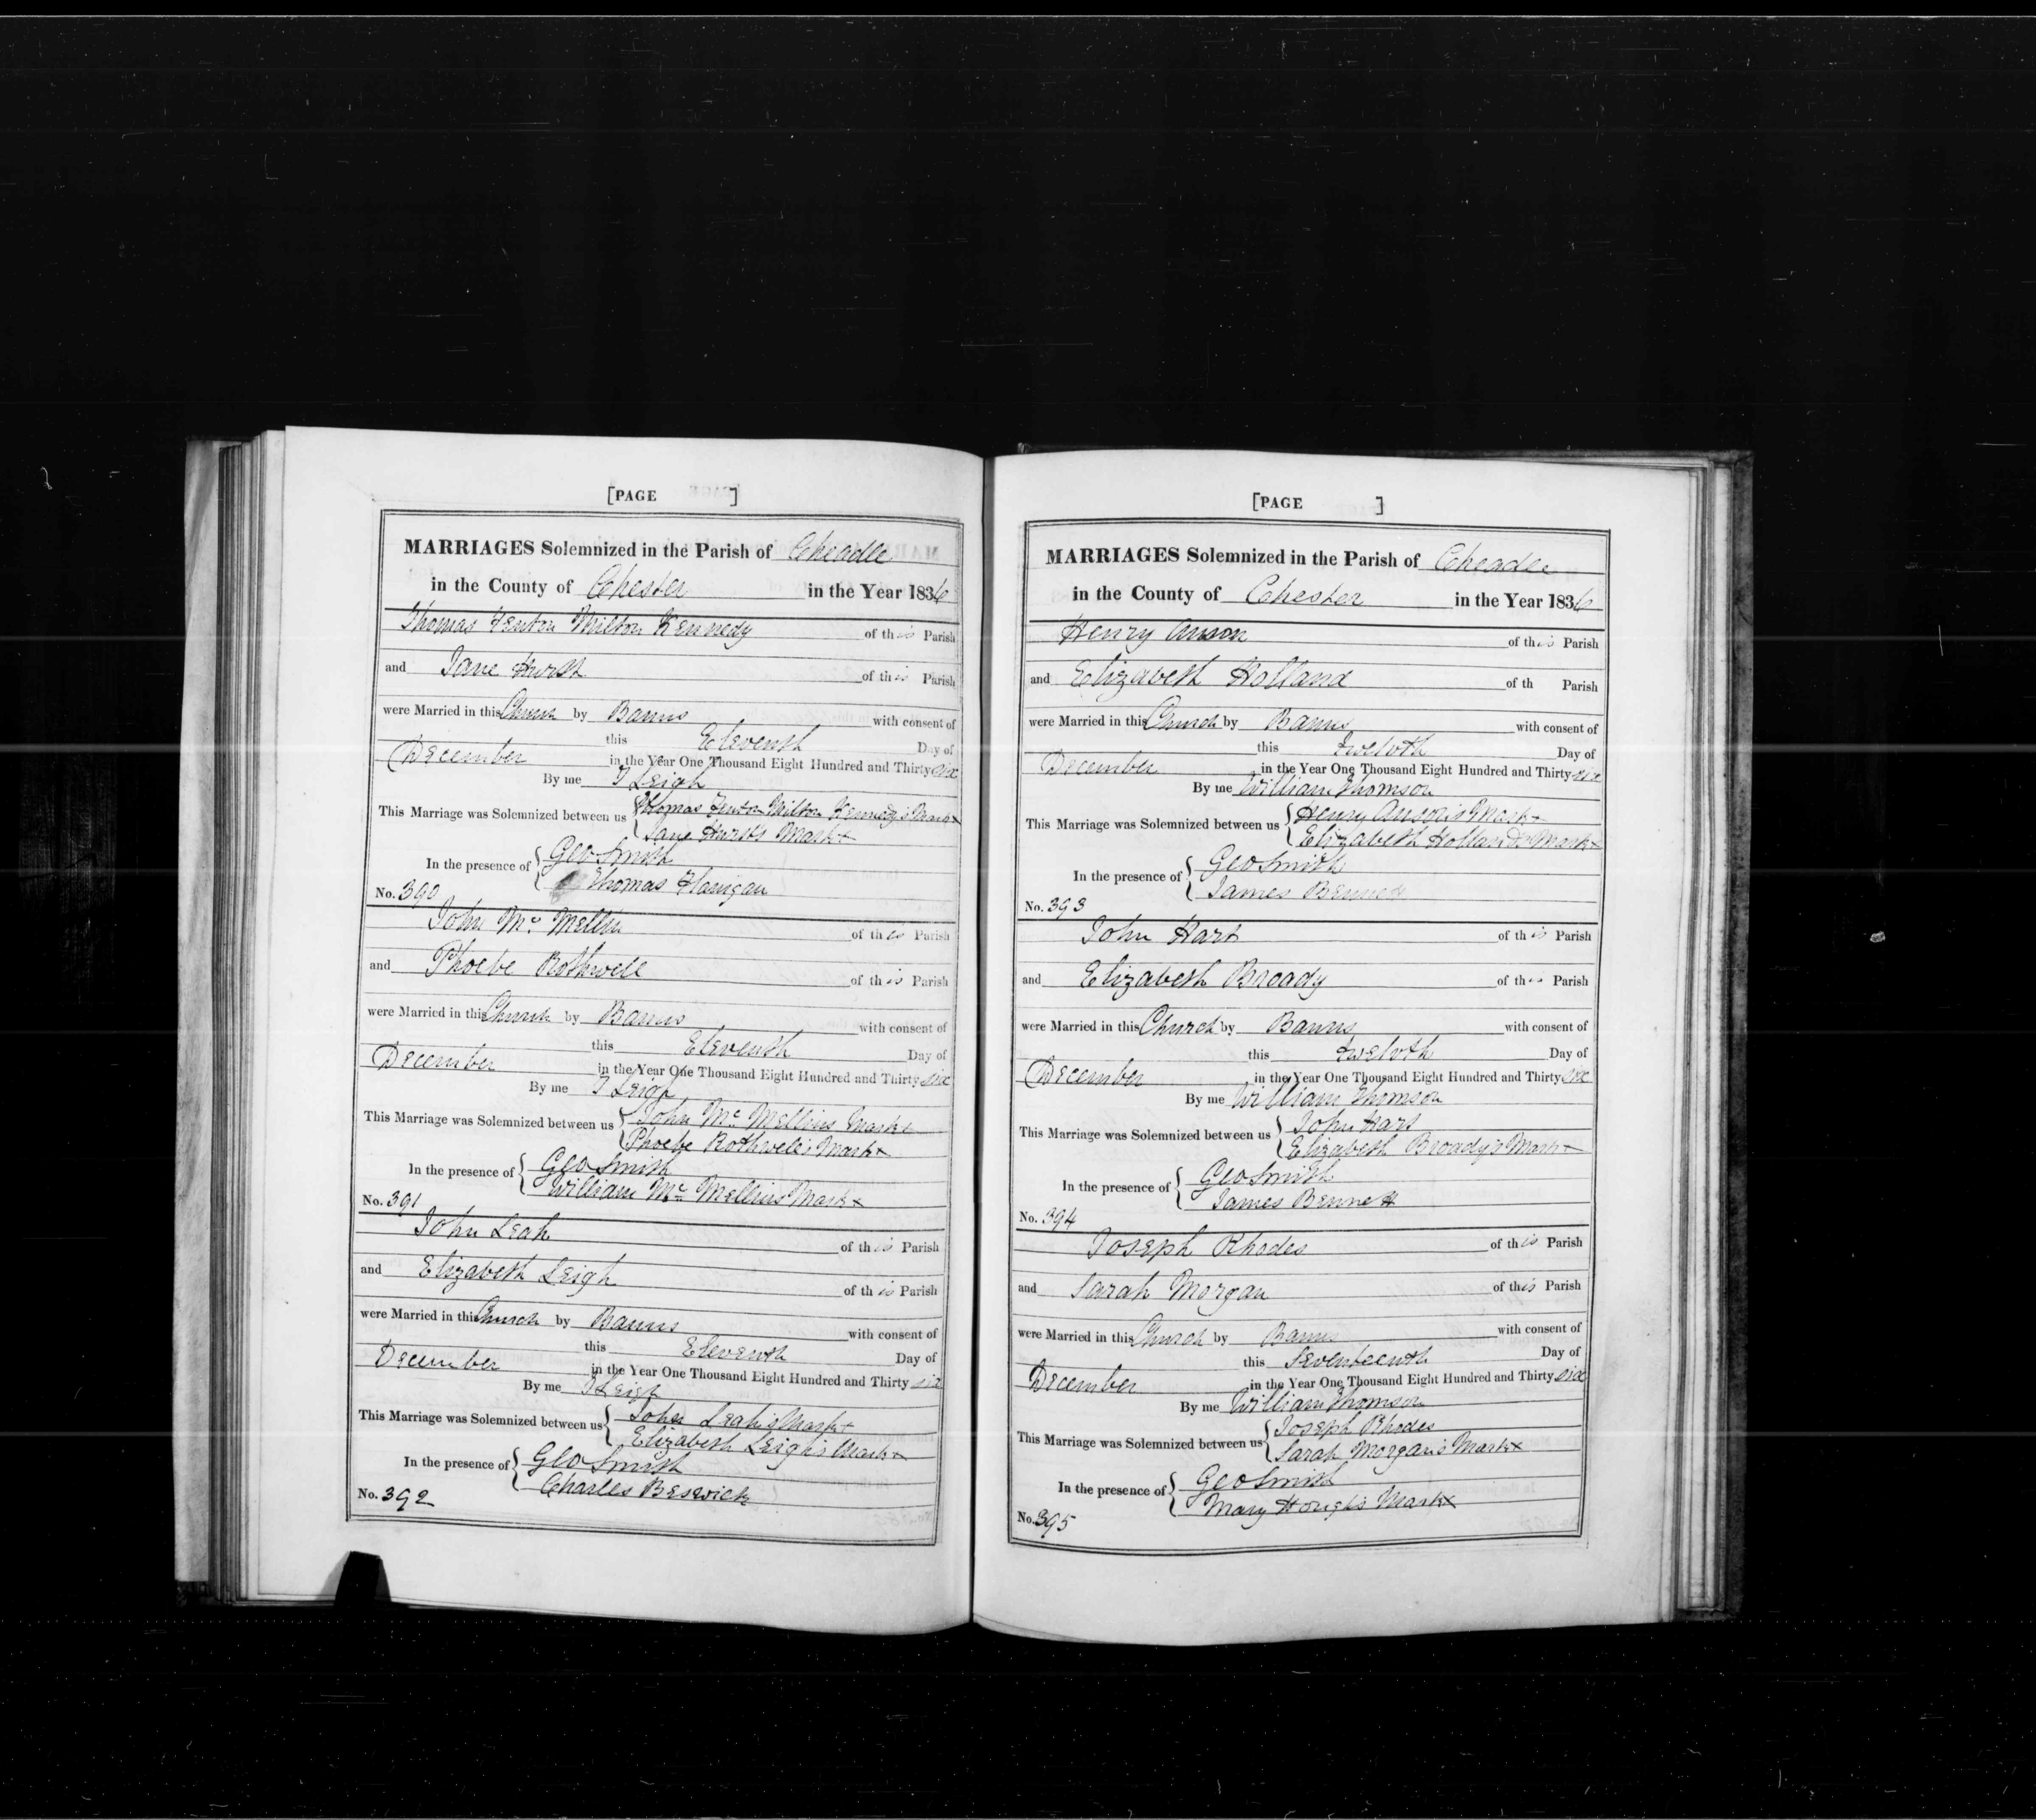 [PAGE ]
MARRIAGES Solemnized in the Parish of Cheadle
in the County of Chester in the Year 1836
Thomas Fenton Milton Kennedy of this Parish
and Jane Hurst of this Parish
were Married in this Church by Banns with consent of
this Eleventh Day of
December in the Year One Thousand Eight Hundred and Thirty six
By me T Leigh
This Marriage was Solemnized between us { Thomas Fenton Milton Kennedy's Mark x
Jane Hurst's Mark x
In the presence of { Geo Smith
Thomas Flanigan
No. 390
John Mc Mellin of this Parish
and Phoebe Rothwell of this Parish
were Married in this Church by Banns with consent of
this Eleventh Day of
December in the Year One Thousand Eight Hundred and Thirty six
By me T Leigh
This Marriage was Solemnized between us { John Mc Mellins Mark x
Phoebe Rothwell's Mark x
In the presence of { Geo Smith
William Mc Mellins Mark x
No. 391
John Leah of this Parish
and Elizabeth Leigh of this Parish
were Married in this Church by Banns with consent of
this Eleventh Day of
December in the Year One Thousand Eight Hundred and Thirty six
By me T Leigh
This Marriage was Solemnized between us { John Leah's Mark x
Elizabeth Leigh's Mark x
In the presence of { Geo Smith
Charles Beswick
No. 392
[PAGE ]
MARRIAGES Solemnized in the Parish of Cheadle
in the County of Chester in the Year 1836
Henry Anson of this Parish
and Elizabeth Holland of th Parish
were Married in this Church by Banns with consent of
this Twelvth Day of
December in the Year One Thousand Eight Hundred and Thirty six
By me William Thomson
This Marriage was Solemnized between us { Henry Mark x
Elizabeth Holland's Mark x
In the presence of { Geo Smith
James Bennett
No. 393
John Hart of this Parish
and Elizabeth Broady of this Parish
were Married in this Church by Banns with consent of
this Twelvth Day of
December in the Year One Thousand Eight Hundred and Thirty six
By me William Thomson
This Marriage was Solemnized between us { John Hart
Elizabeth Broady's Mark x
In the presence of { Geo Smith
James Bennett
No. 394
Joseph Rhodes of this Parish
and Sarah Morgan of this Parish
were Married in this Church by Banns with consent of
this Seventeenth Day of
December in the Year One Thousand Eight Hundred and Thirty six
By me William Thomson
This Marriage was Solemnized between us { Joseph Rhodes
Sarah Morgan's Mark x
In the presence of { Geo Smith
Mary Hough's Mark x
No. 395